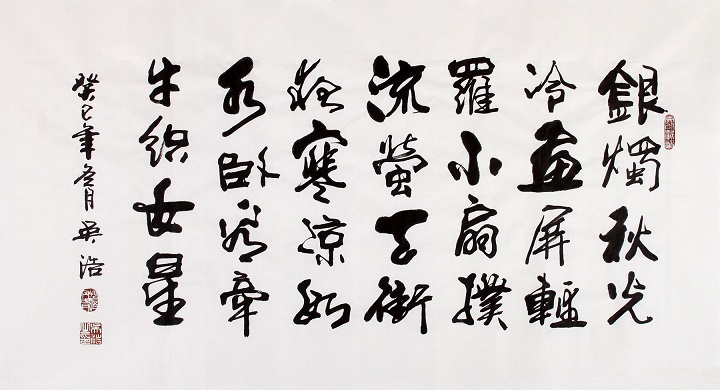 銀燭秋光
冷畫屏輕
羅小扇撲
流螢天街
夜寒涼如
水臥看牽
牛织女星
癸巳年冬月吴浩